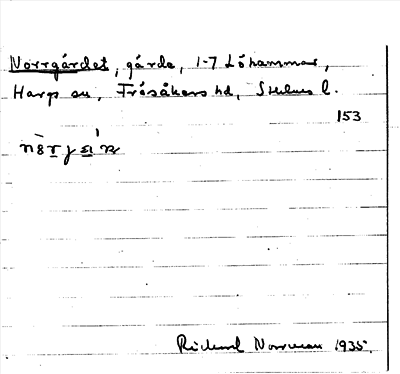 Norrgärdet, gärde, 1-7 Löhammar,
Hargs sn, Frösåkers hd, Sthlms l.
153
Richard Norrman 1935.